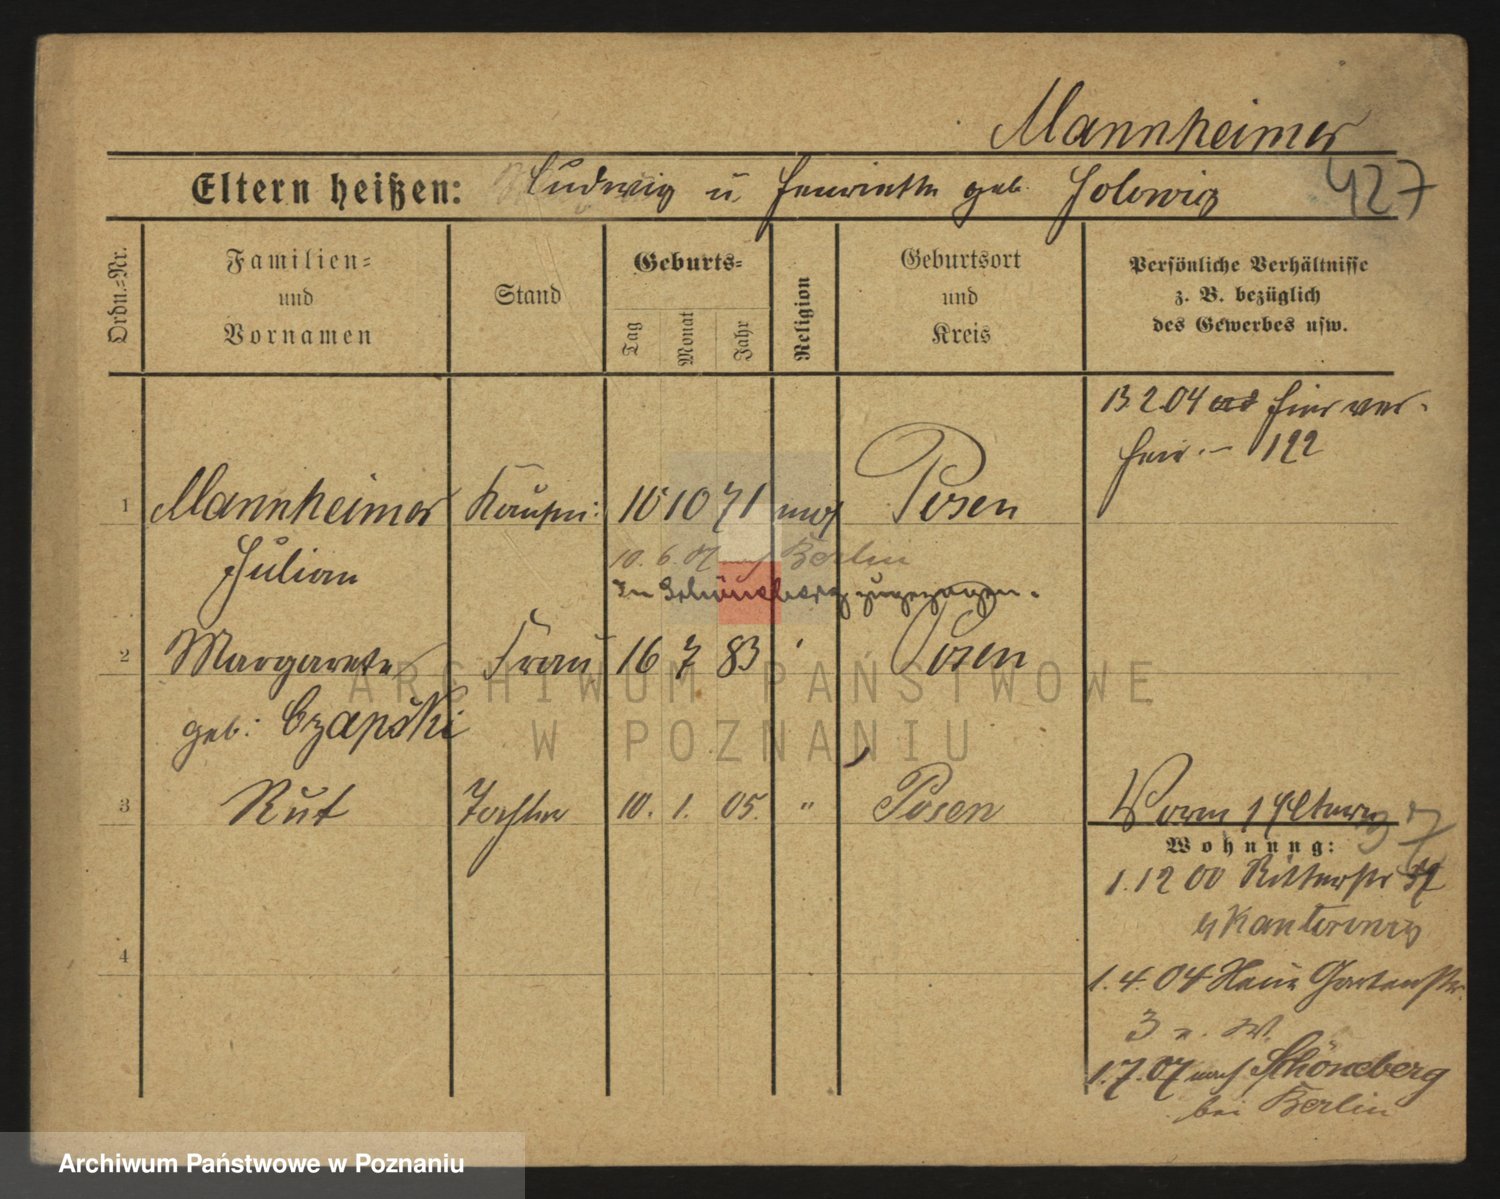 Mannheimer
Eltern heißen: Ludwig u. Henriette geb. Holowiz
427
Ordn.=Nr.
Familien=
und
Vornamen
Stand
Geburts=
Tag
Monat
Jahr
Religion
Geburtsort
und
Kreis
Persönliche Verhältnisse
z. B. bezüglich
des Gewerbes usw.
13 2.04 hier ver-
heir. – 122
1 Mannheimer Kaufm: 10 10 71 mos Posen
Julian
10. 6. 07 nach Berlin
In Schöneberg zugezogen.
2 Margarete Frau 16 7 83 " Posen
geb: Czapski
3 Rut Tochter 10. 1. 05. " Posen
Vorm 1
Wohnung:
1. 12 00 Ritterstr 37
b Kantorowiz
4
1. 4. 04 Neue Gartenstr.
3 n. W.
1. 7. 07 nach Schöneberg
bei Berlin
ARCHIWUM PAŃSTWOWE
W POZNANIU
Archiwum Państwowe w Poznaniu